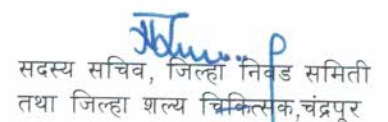 सदस्य सचिव, जिल्हा निवड समिती
तथा जिल्हा शल्य चिकित्सक,चंद्रपूर